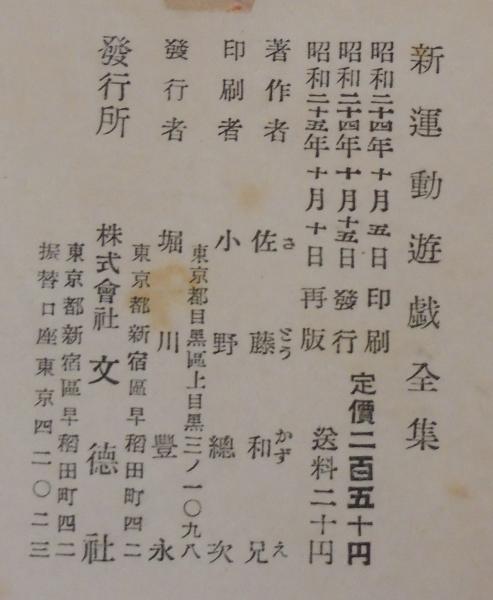 新運動遊戯全集
昭和二十四年十月五日印刷
昭和二十四年十月十五日發行
昭和二十五年十月十日再版
定價二百五十円
送料二十円
著作者 佐藤和兄
さ とう かず え
印刷者 小野總次
東京都目黒區上目黒三ノ一〇九八
發行者 堀川豐永
東京都新宿區早稻田町四二
發行所 株式會社 文德社
東京都新宿區早稻田町四二
振替口座東京四二〇二三